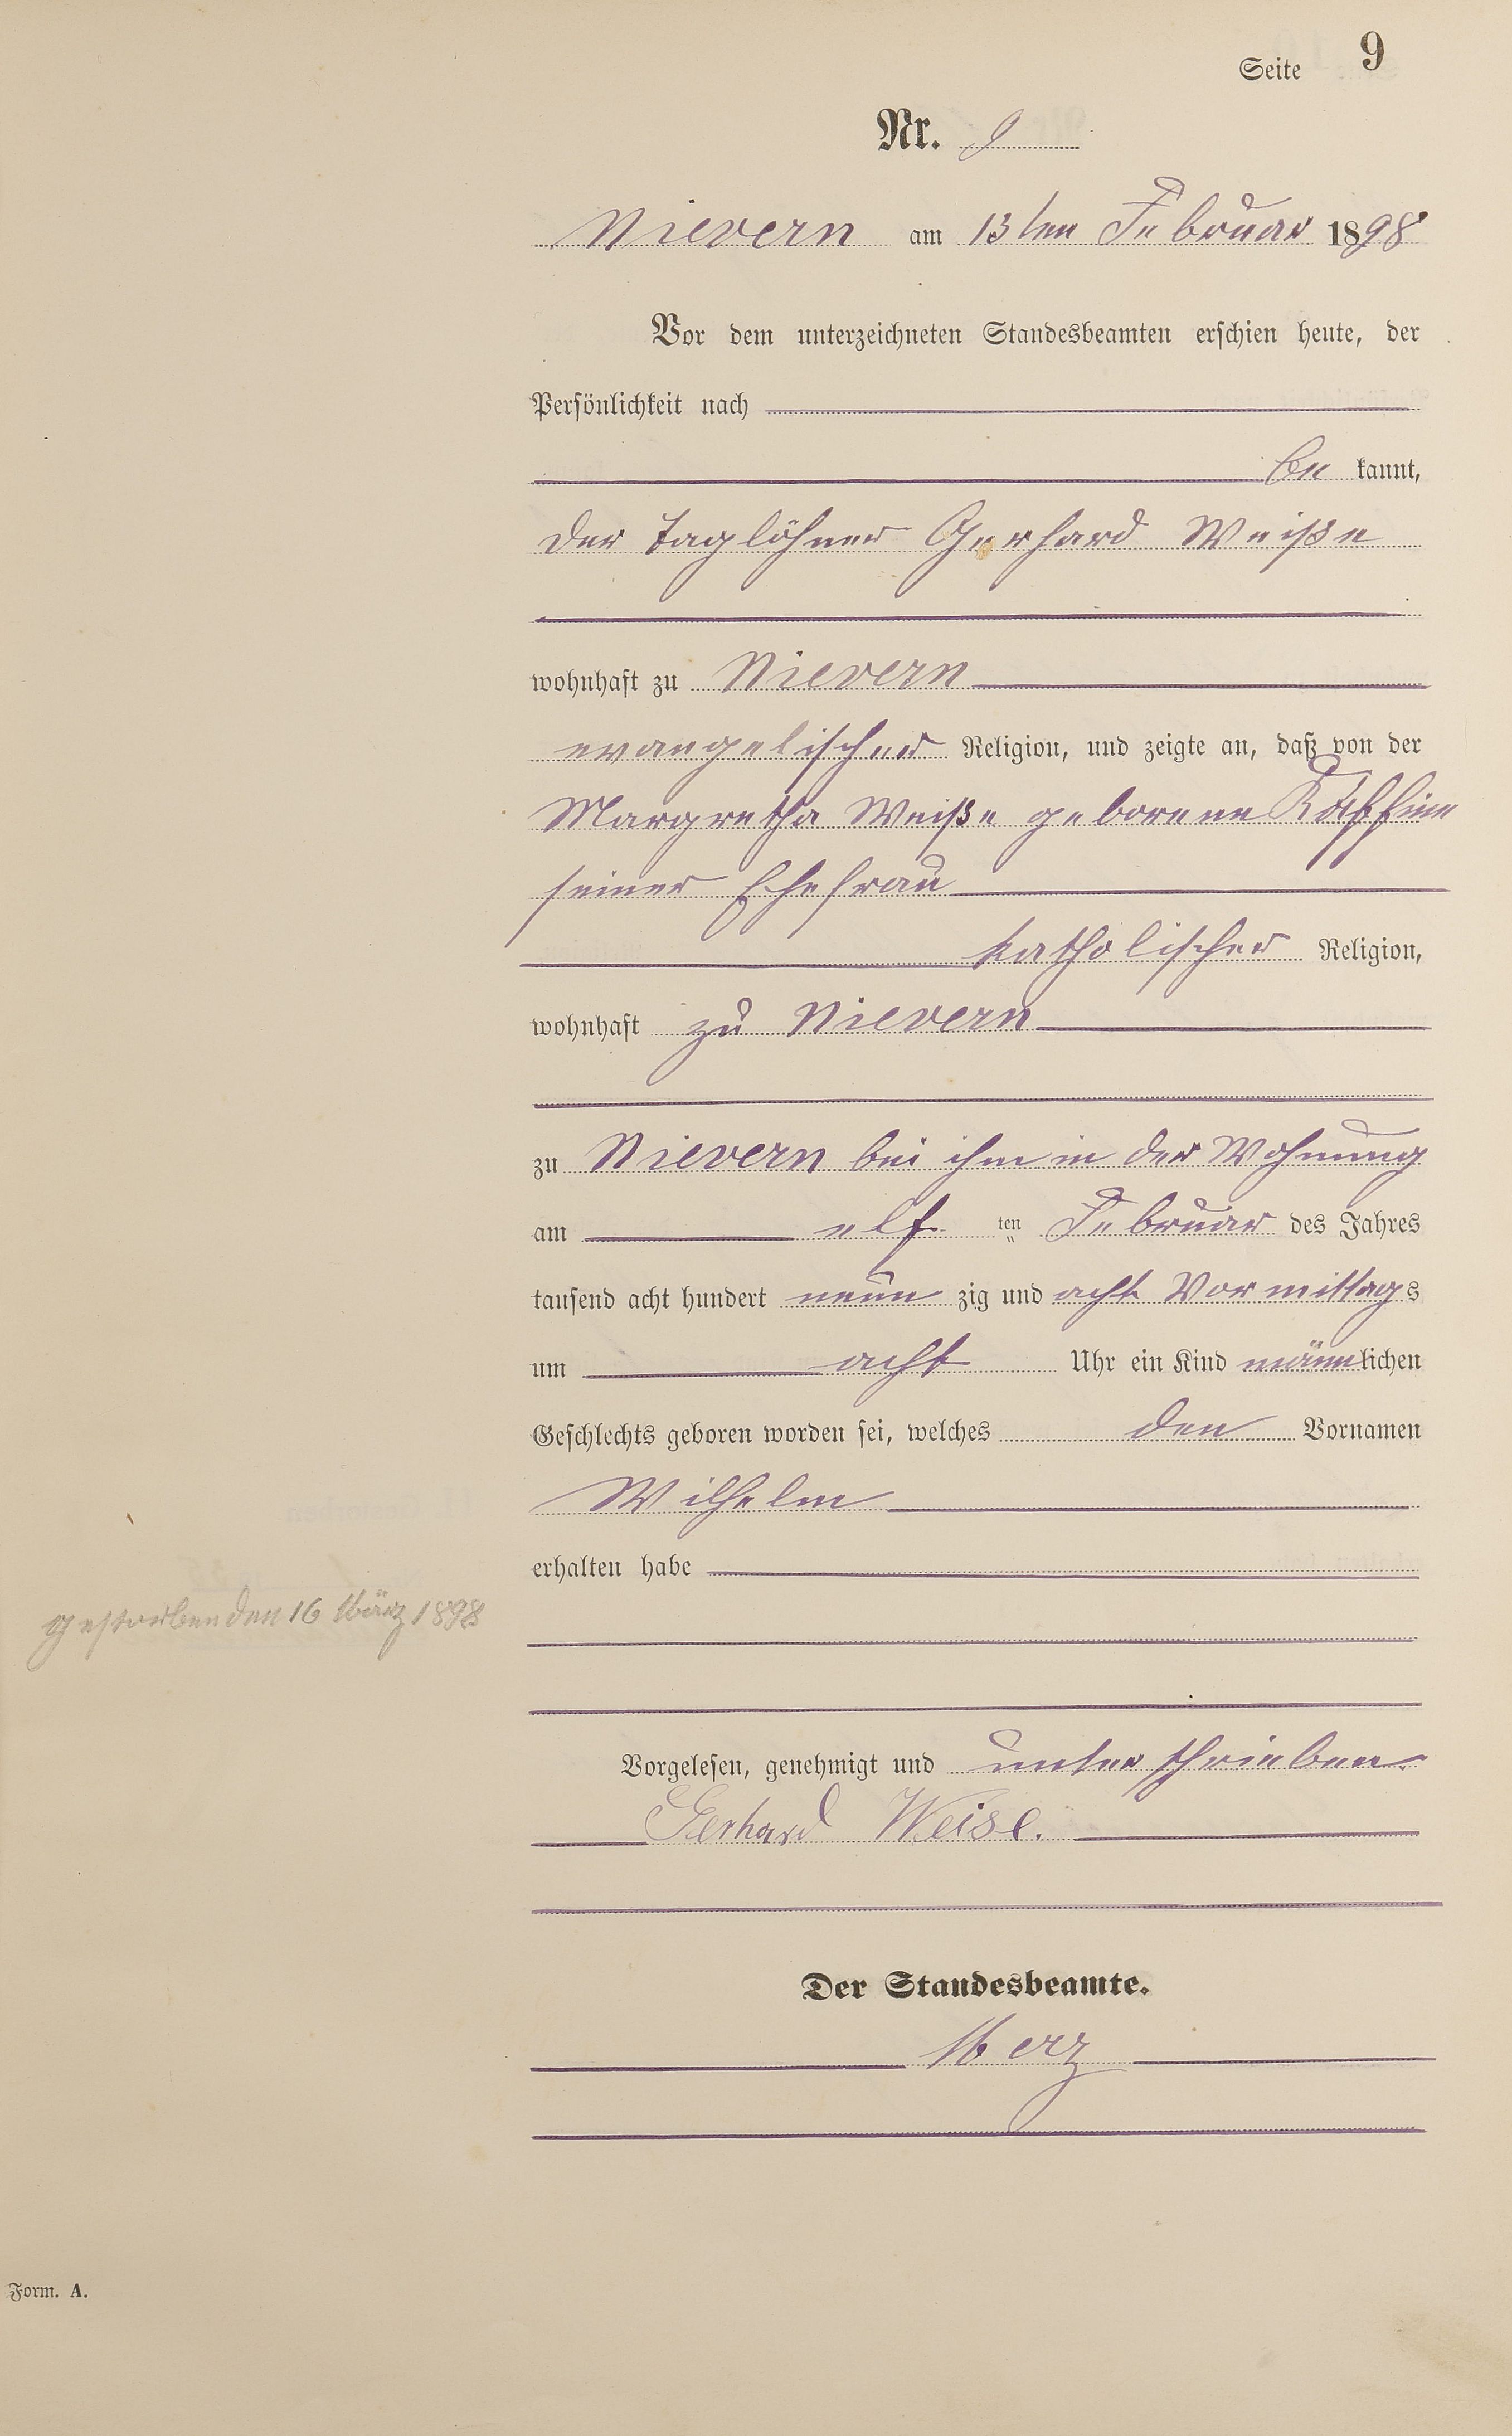 Seite 9
Nr. 9
Nievern am 13ten Februar 1898
Vor dem unterzeichneten Standesbeamten erschien heute, der
Persönlichkeit nach
be kannt,
der Taglöhner Gerhard Weiße
wohnhaft zu Nievern
evangelischer Religion, und zeigte an, daß von der
Margretha Weiße geborene
seiner Ehefrau
katholischer Religion,
wohnhaft zu Nievern
zu Nievern bei ihm in der Wohnung
am elf ten Februar des Jahres
tausend acht hundert neun zig und acht Vor mittags
um acht Uhr ein Kind männlichen
Geschlechts geboren worden sei, welches den Vornamen
Wilhelm
erhalten habe
gestorben den 16 März 1898
Vorgelesen, genehmigt und unterschrieben.
Gerhard Weise.
Der Standesbeamte.
Merz
Form. A.